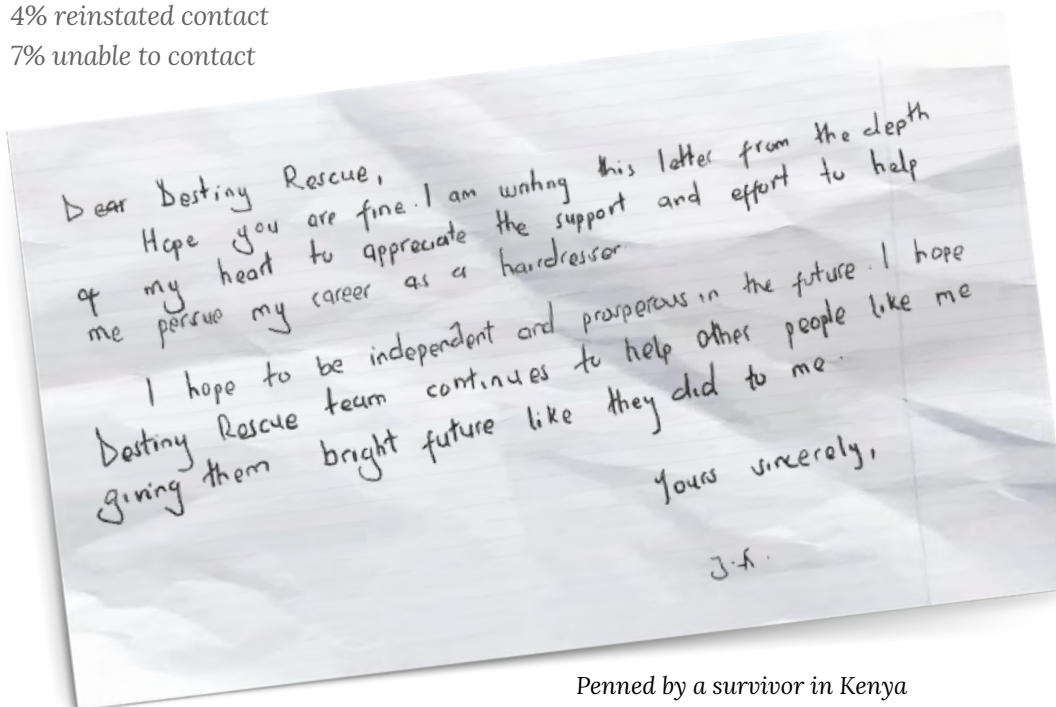 4% reinstated contact
7% unable to contact
Dear Destiny Rescue,
Hope you are fine. I am writing this letter from the depth
of my heart to appreciate the support and effort to help
me persue my career as a hairdresser
I hope to be independent and prosperous in the future. I hope
Destiny Rescue team continues to help other people like me
giving them bright future like they did to me.
Yours sincerely,
Penned by a survivor in Kenya